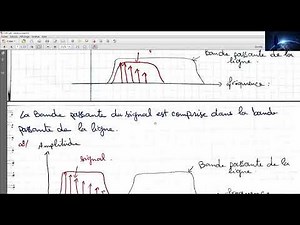 Bande passante de la
ligne.
fréquence
La Bande passante du signal est comprise dans la bande
passante de la ligne.
Amplitude
signal
Bande passante de la
ligne.
fréquence